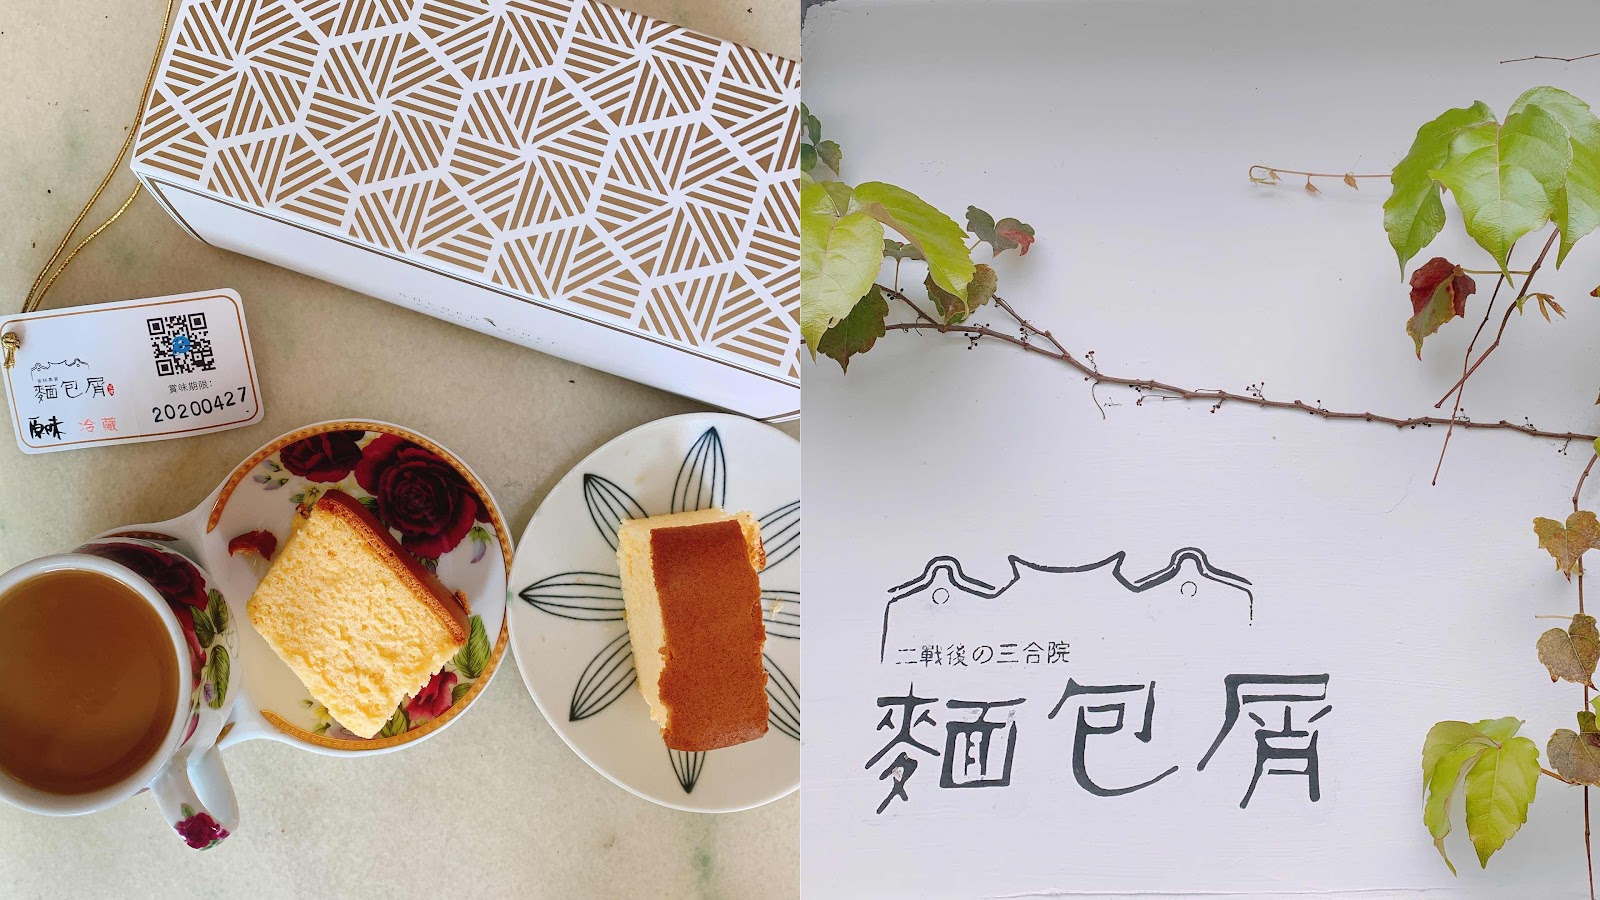 麵包屑
原味 冷藏
賞味期限:
20200427
二戰後の三合院
麵包屑